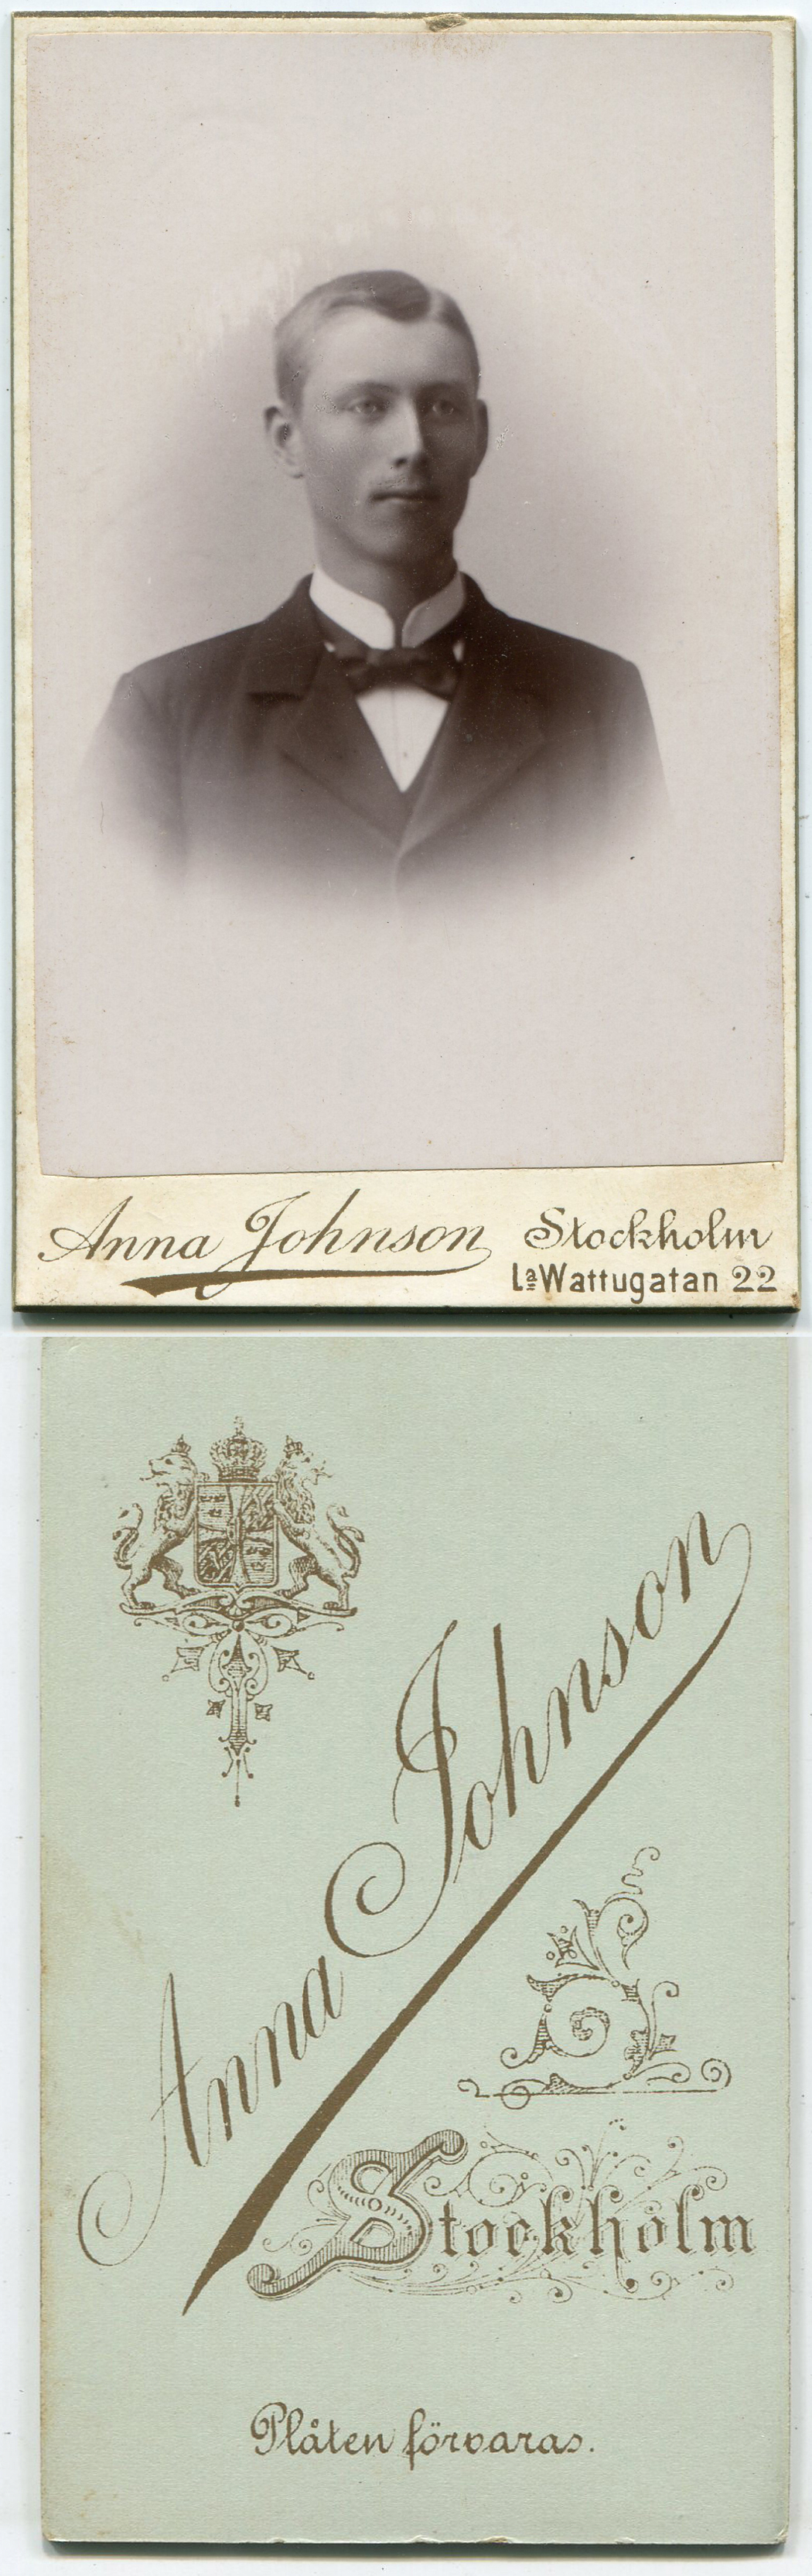 Anna Johnson Stockholm
La Wattugatan 22
Anna Johnson
Stockholm
Plåten förvaras.